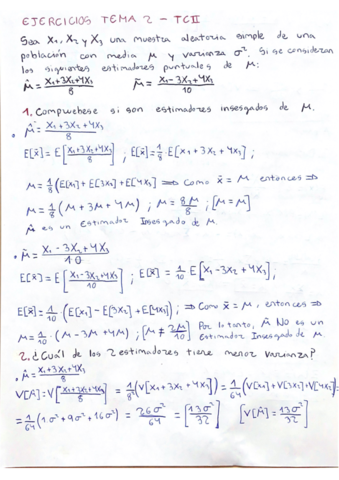 EJERCICIOS TEMA 2 - TCII
Sea X₁, X₂ y X₃ una muestra aleatoria simple de una
población con media μ y varianza σ². Si se consideran
los siguientes estimadores puntuales de μ:
μ̂ = (X₁+3X₂+4X₃)/8    μ̃ = (X₁-3X₂+4X₃)/10
1. Compruebese si son estimadores insesgados de μ.
• μ̂ = (X₁+3X₂+4X₃)/8
E[x̄] = E[(X₁+3X₂+4X₃)/8] ; E[x̄] = 1/8 · E[X₁+3X₂+4X₃] ;
μ = 1/8 (E[X₁]+E[3X₂]+E[4X₃]) ⇒ Como x̄ = μ entonces ⇒
μ = 1/8 (μ+3μ+4μ) ; μ = 8μ/8 ; [μ = μ]
μ̂ es un Estimador Insesgado de μ.
• μ̃ = (X₁-3X₂+4X₃)/10
E[x̄] = E[(X₁-3X₂+4X₃)/10] ; E[x̄] = 1/10 · E[X₁-3X₂+4X₃] ;
E[x̄] = 1/10 · (E[X₁]-E[3X₂]+E[4X₃]) ; ⇒ Como x̄ = μ, entonces ⇒
μ = 1/10 · (μ-3μ+4μ) ; [μ ≠ 2μ/10] Por lo tanto, μ̂ NO es un
Estimador Insesgado de μ.
2. ¿Cuál de los 2 estimadores tiene menor varianza?
• μ̂ = (X₁+3X₂+4X₃)/8
V[μ̂] = V[(X₁+3X₂+4X₃)/8] = 1/8² (V[X₁+3X₂+4X₃]) = 1/64 (V[X₁]+V[3X₂]+V[4X₃]) =
= 1/64 (1σ²+9σ²+16σ²) = 26σ²/64 = [13σ²/32]    [V[μ̂] = 13σ²/32]